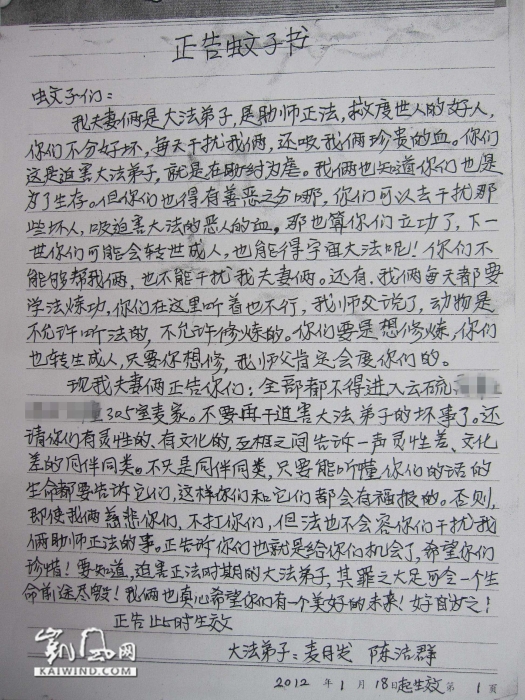 正告蚊子书
蚊子们：
我夫妻俩是大法弟子，是助师正法，救度世人的好人，
你们不分好坏，每天干扰我俩，还吸我俩珍贵的血。你们
这是迫害大法弟子，就是在助纣为虐。我俩也知道你们也是
为了生存。但你们也得有善恶之分哪，你们可以去干扰那
些坏人，吸迫害大法的恶人的血，那也算你们立功了，下一
世你们可能会转世成人，也能得宇宙大法呢！你们不
能够帮我俩，也不能干扰我夫妻俩。还有，我俩每天都要
学法炼功，你们在这里听着也不行，我师父说了，动物是
不允许听法的，不允许修炼的。你们要是想修炼，你们
也转生成人，只要你想修，我师父肯定会度你们的。
现我夫妻俩正告你们：全部都不得进入云硫
305室麦家。不要再干迫害大法弟子的坏事了。还
请你们有灵性的、有文化的，互相之间告诉一声灵性差、文化
差的同伴同类。不只是同伴同类，只要能听懂你们的话的
生命都要告诉它们，这样你们和它们都会有福报的。否则，
即使我俩慈悲你们，不打你们，但法也不会容你们干扰我
俩助师正法的事。正告你们也就是给你们机会了，希望你们
珍惜！要知道，迫害正法时期的大法弟子，其罪之大足可令一个生
命前途尽毁！我俩也真心希望你们有一个美好的未来！好自为之！
正告此时生效
大法弟子：麦月发 陈洁群
2012 年 1 月 18日起生效 第 1 页
凯风网
KAIWIND.COM